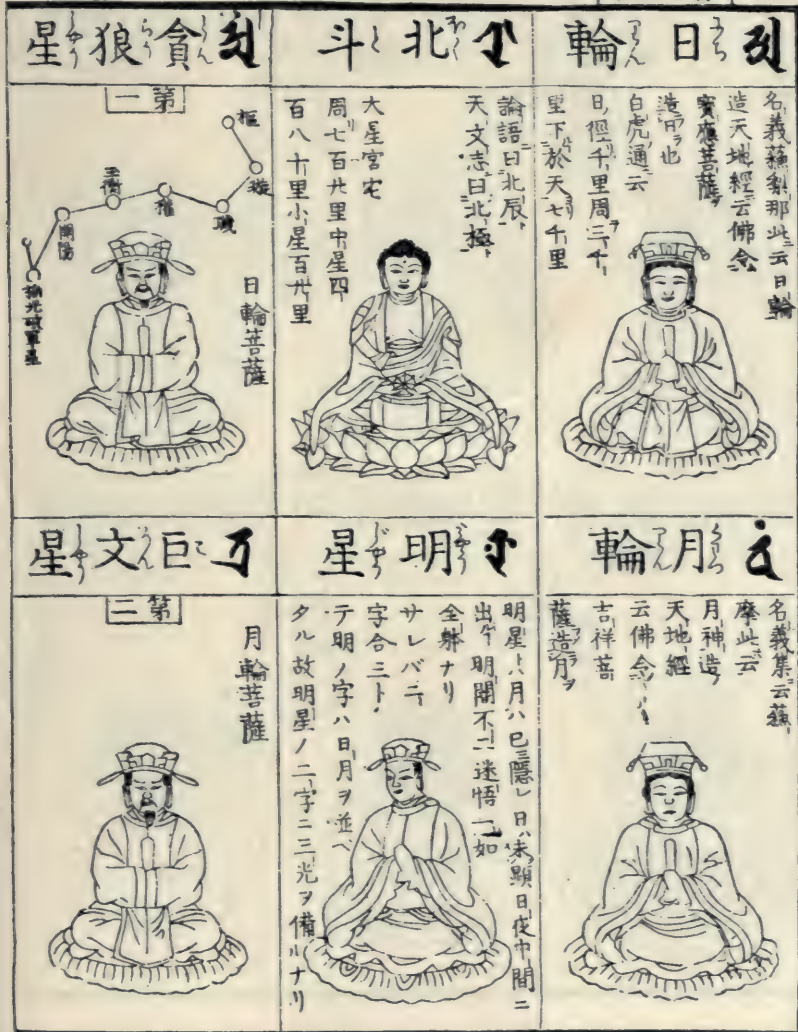 日輪
にち りん
名義蘓梨那此ニ云日輪
造天地經云佛令
寳應菩薩ヲ
造日ヲ也
白虎通云
日ノ徑千里周三千
里下於天七千里
北斗
ほく と
論語曰北辰
天文志曰北極
大星宮宅
周七百廾里中星四
百八十里小星百廾里
貪狼星
とん らう しやう
第一
樞
璇
璣
權
玉衡
開陽
搖光破軍星
日輪菩薩
月輪
ぐわち りん
名義集ニ云蘓
摩此云
月神造
天地經
云佛令
吉祥菩
薩造月ヲ
明星
みやう じやう
明星トハ月ハ已ニ隠レ日ハ未顯日夜中間ニ
出ケ明闇不二迷悟一如
全躰ナリ
サレバ二
字合三ト
テ明ノ字ハ日月ヲ並ベ
タル故明星ノ二字ニ三光ヲ備ルナリ
巨文星
こ もん しやう
第二
月輪菩薩